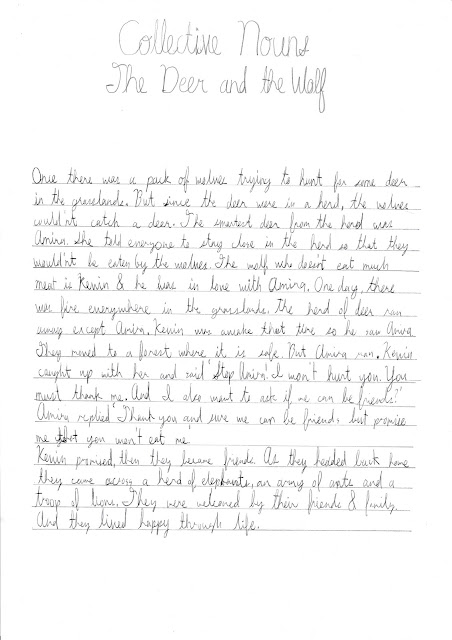 Collective Nouns
The Deer and the Walf
Once there was a pack of wolves trying to hunt for some deer
in the grasslands. But since the deer were in a herd, the wolves
could'nt catch a deer. The smartest deer from the herd was
Amira. She told everyone to stay close in the herd so that they
would'nt be eaten by the wolves. The wolf who does'nt eat much
meat is Kevin & he was in love with Amira. One day, there
was fire everywhere in the grasslands. The herd of deer ran
away except Amira. Kevin was awake that time so he saw Amira
They moved to a forest where it is safe. But Amira ran. Kevin
caught up with her and said "Stop Amira. I won't hurt you. You
must thank me. And I also want to ask if we can be friends?"
Amira replied "Thank you and sure we can be friends, but promise
me that you won't eat me.
Kevin promised, then they became friends. As they headed back home
they came across a herd of elephants, an army of ants and a
troop of lions. They were welcomed by their friends & family.
And they lived happy through life.